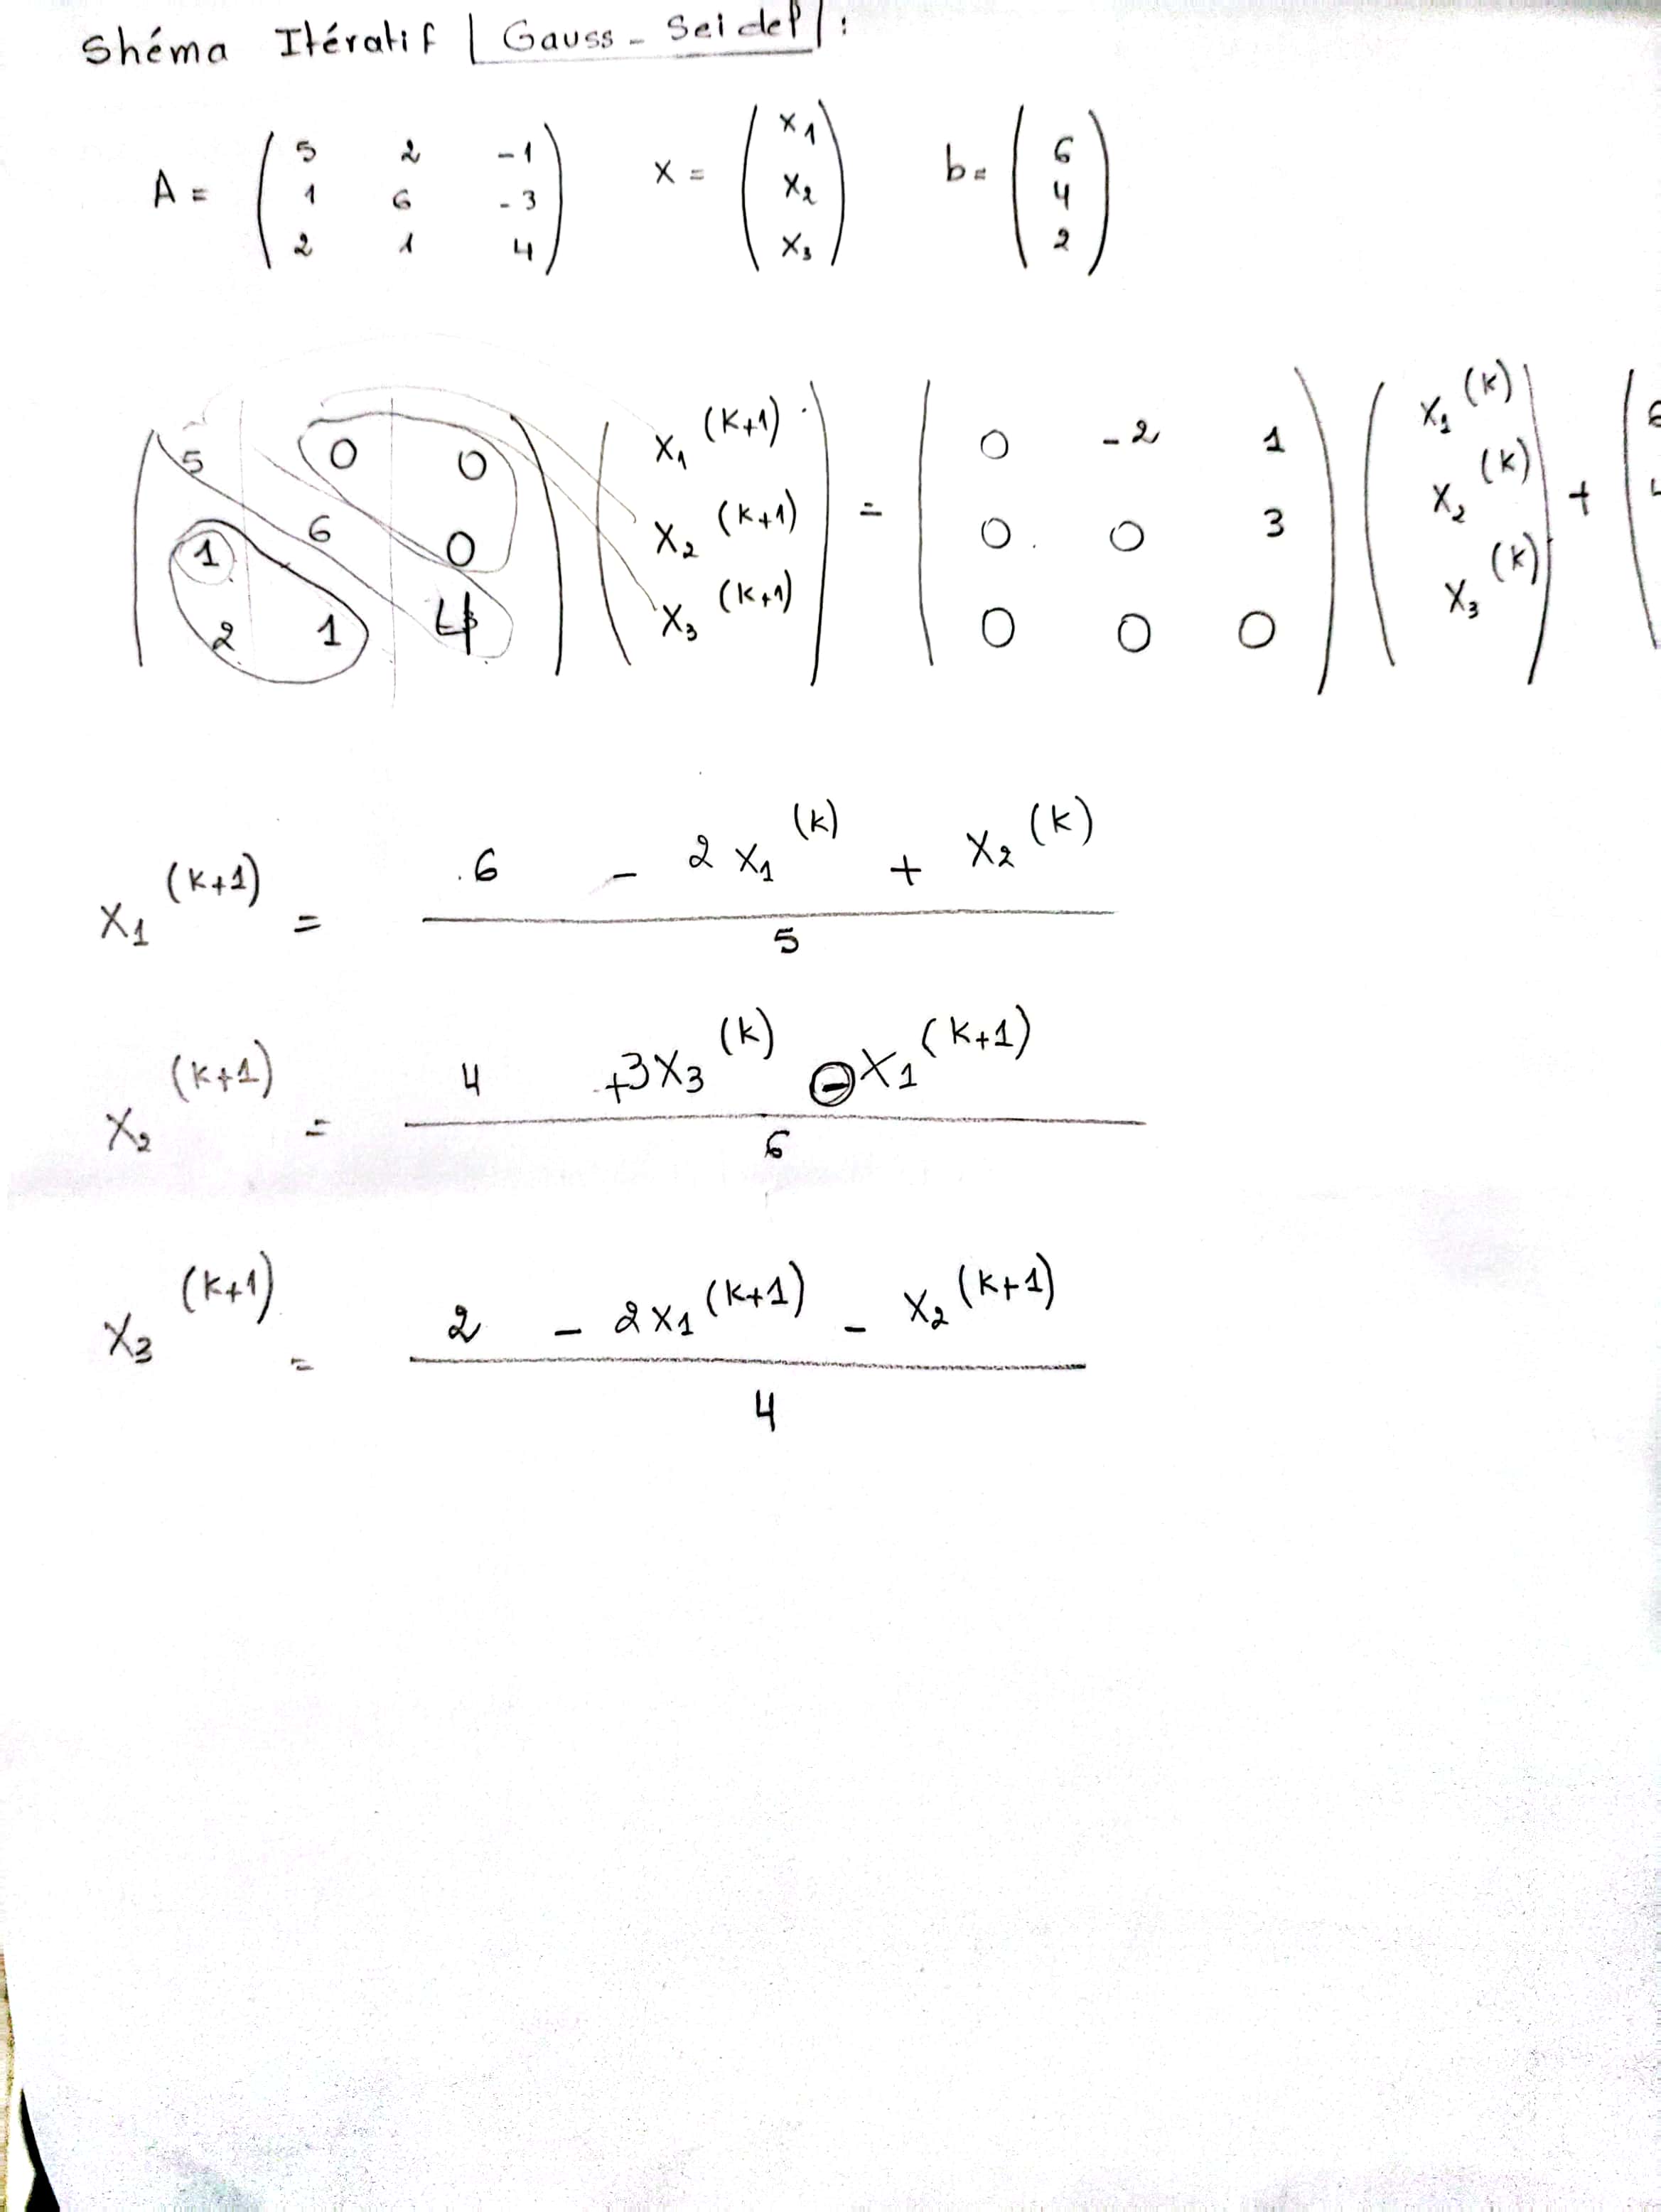 Shéma Itératif | Gauss - Seidel | :
A = ( 5 2 -1 ; 1 6 -3 ; 2 1 4 ) X = ( x1 ; x2 ; x3 ) b = ( 6 ; 4 ; 2 )
( 5 0 0 ; 1 6 0 ; 2 1 4 ) ( x1^(k+1) ; x2^(k+1) ; x3^(k+1) ) = ( 0 -2 1 ; 0 0 3 ; 0 0 0 ) ( x1^(k) ; x2^(k) ; x3^(k) ) + (
x1^(k+1) = (6 - 2x1^(k) + x2^(k)) / 5
x2^(k+1) = (4 +3x3^(k) - x1^(k+1)) / 6
x3^(k+1) = (2 - 2x1^(k+1) - x2^(k+1)) / 4